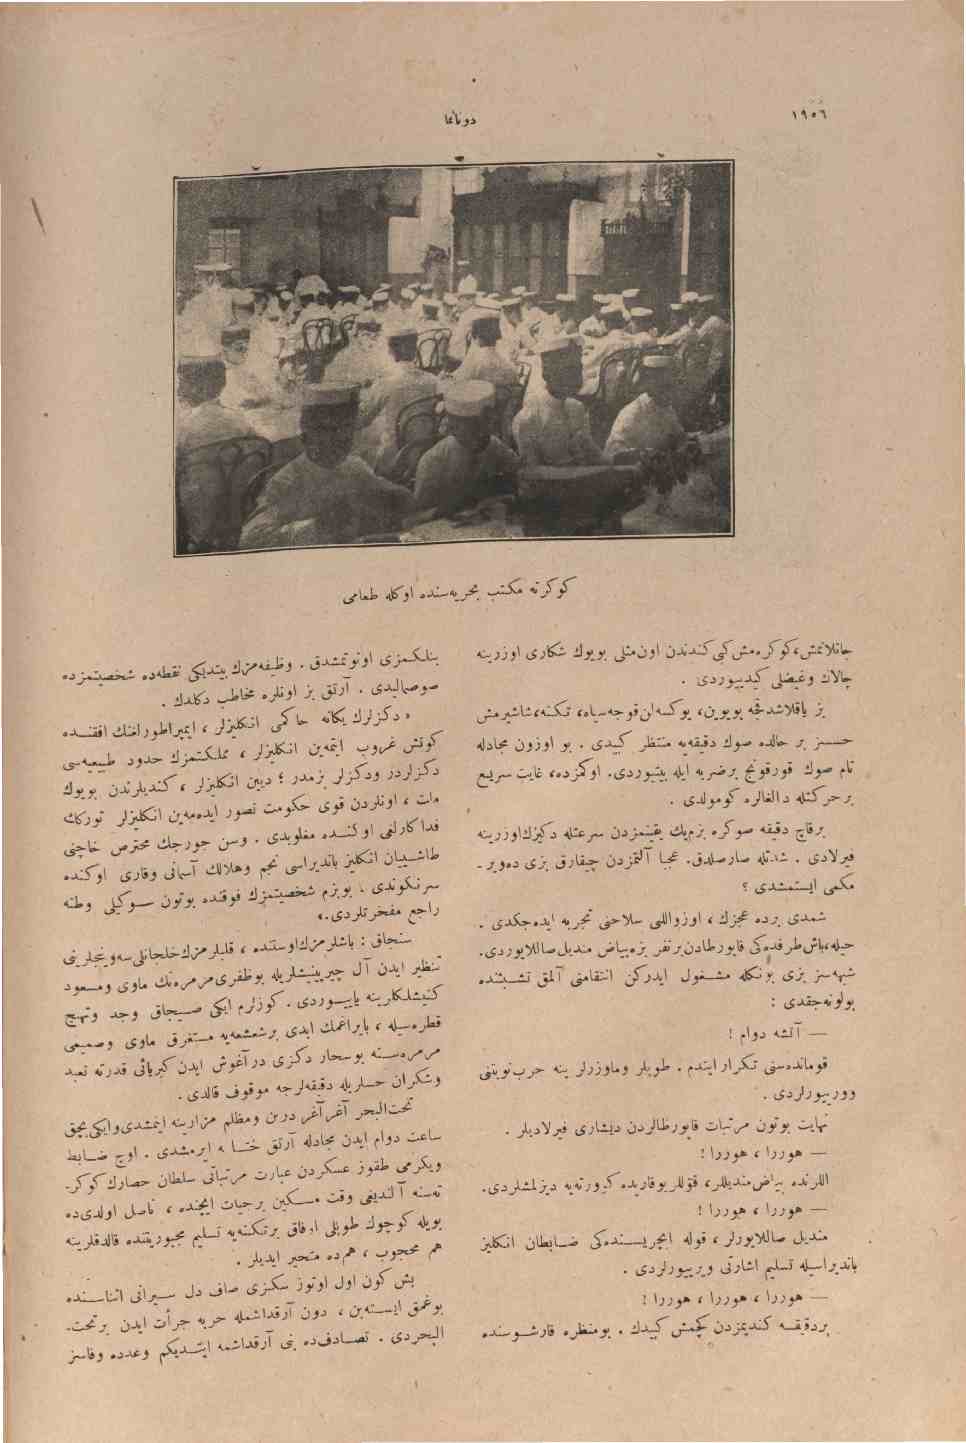 ١٩٥٦
دونانما
كوكرته مكتب بحريه‌سنده اوكله طعامى
جانلانمش، كوكره‌مش كبى كندندن اون مثلى بويوك شكارى اوزرينه
چالاك وغيضلى كيدييوردى.
بز ياقلاشدقجه بويوين، يوكسه‌لن قوجه سياه، تكنه، شاشيرمش
حسسز بر حالده صوك دقيقه‌يه منتظر كبيدى. بو اوزون مجادله
تام صوك قورقونج برضربه ايله بيتييوردى. اوكمزده، غايت سريع
بر حركتله دالغالره كومولدى.
برقاچ دقيقه صوكره بزم پك يقينمزدن سرعتله دكزك اوزرينه
فيرلادى. شدتله صارصلدق. عجبا آلتمزدن چيقارق بزى ده‌وير-
مكمى ايسته‌مشدى؟
شمدى برده عجزك، اوزواللى سلاحنى تجربه ايده‌جكدى.
حيله، باش طرفده‌كى قاپورطادن برنفر بزه بياض منديل صاللايوردى.
شبهه‌سز بزى بونكله مشغول ايدركن انتقامنى آلمق تشبثنده
بولونه‌جقدى:
— آتشه دوام!
قوماندەسنى تكرار ايتدم. طوپلر وماوزرلر ينه حرب نوبتنى
وورييورلردى.
نهايت بوتون مرتبات قاپورطالردن ديشارى فيرلاديلر.
— هوررا، هوررا!
اللرنده بياض منديللر، قوللر يوقاريده كوورته‌يه ديزلمشلردى.
— هوررا، هوررا!
منديل صاللايورلر، قوله ايچريسنده‌كى ضابطان انكليز
بانديراسيله تسليم اشارتى ويرييورلردى.
— هوررا، هوررا، هوررا!
بردقيقه كنديمزدن كچمش كبيدك. بومنظره قارشوسنده
بنلكمزى اونوتمشدق. وظيفه‌مزك بيتديكى نقطه‌ده شخصيتمز ده
صوصماليدى. آرتق بز اونلره مخاطب دكلدك.
« دكزلرك يكانه حاكمى انكليزلر، ايمپراطورلغنك افقنده
كونش غروب ايتمه‌ين انكليزلر، مملكتمزك حدود طبيعيه‌سى
دكزلردر ودكزلر بزمدر؛ ديين انكليزلر، كنديلرندن بويوك
ملت، اونلردن قوى حكومت تصور ايده‌مه‌ين انكليزلر توركك
فداكارلغى اوكنده مغلوبدى. وسن جورجك محترص خاچنى
طاشييان انكليز بانديراسى نجم وهلالك آسمانى وقارى اوكنده
سرنكوندى. بوبزم شخصيتمزك فوقنده بوتون سوكيلى وطنه
راجع مفخرتلردى.»
سنجاق: باشلرمزك اوستنده، قلبلرمزك خلجانلى سه‌وينجلرينى
تنظير ايدن آل چيرپينيشلريله بوظفرى مرمره‌نك ماوى ومسعود
كنيشلكلرينه ياييوردى. كوزلرم ايكى صيجاق وجد وتهيج
قطره‌سيله، بايراغمك ابدى برشعشعه‌يه مستغرق ماوى وصميمى
مرمره‌سنه بوسحار دكزى درآغوش ايدن كبريائى قدرته تعبد
وشكران حسلريله دقيقه‌لرجه موقوف قالدى.
تحت‌البحر آغر آغر درين ومظلم مزارينه اينمشدى وايكى بچق
ساعت دوام ايدن مجادله آرتق ختامه ايرمشدى. اوچ ضابط
ويكرمى طقوز عسكردن عبارت مرتباتى سلطان حصارك كوكر-
ته‌سنه آلنديغى وقت مسكين برحيات ايچنده، ناصل اولدى‌ده
بويله كوچوك طوپلى اوفاق برتكنه‌يه تسليم مجبوريتنده قالدقلرينه
هم محجوب، هم‌ده متحير ايديلر.
بش كون اول اوتوز سكزى صاف دل سيرانى اثناسنده
بوغمق ايسته‌ين، دون آرقداشمله حربه جرأت ايدن برتحت-
البحردى. تصادف‌ده بنى آرقداشمه ايتديكم وعدده وفاسز